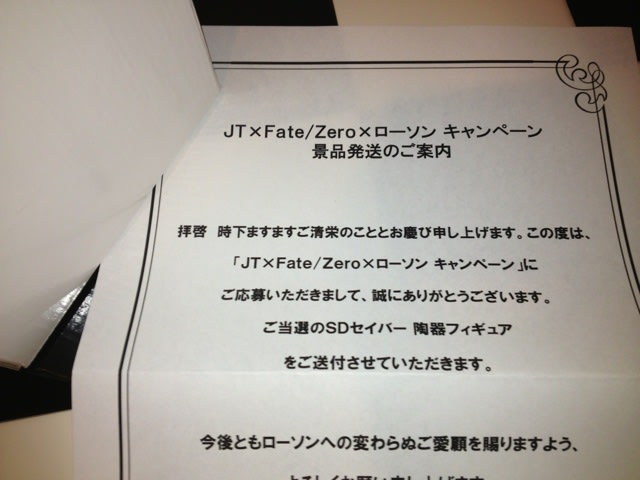 JT×Fate/Zero×ローソン キャンペーン
景品発送のご案内
拝啓 時下ますますご清栄のこととお慶び申し上げます。この度は、
「JT×Fate/Zero×ローソン キャンペーン」に
ご応募いただきまして、誠にありがとうございます。
ご当選のSDセイバー 陶器フィギュア
をご送付させていただきます。
今後ともローソンへの変わらぬご愛顧を賜りますよう、
よろしくお願い申し上げます